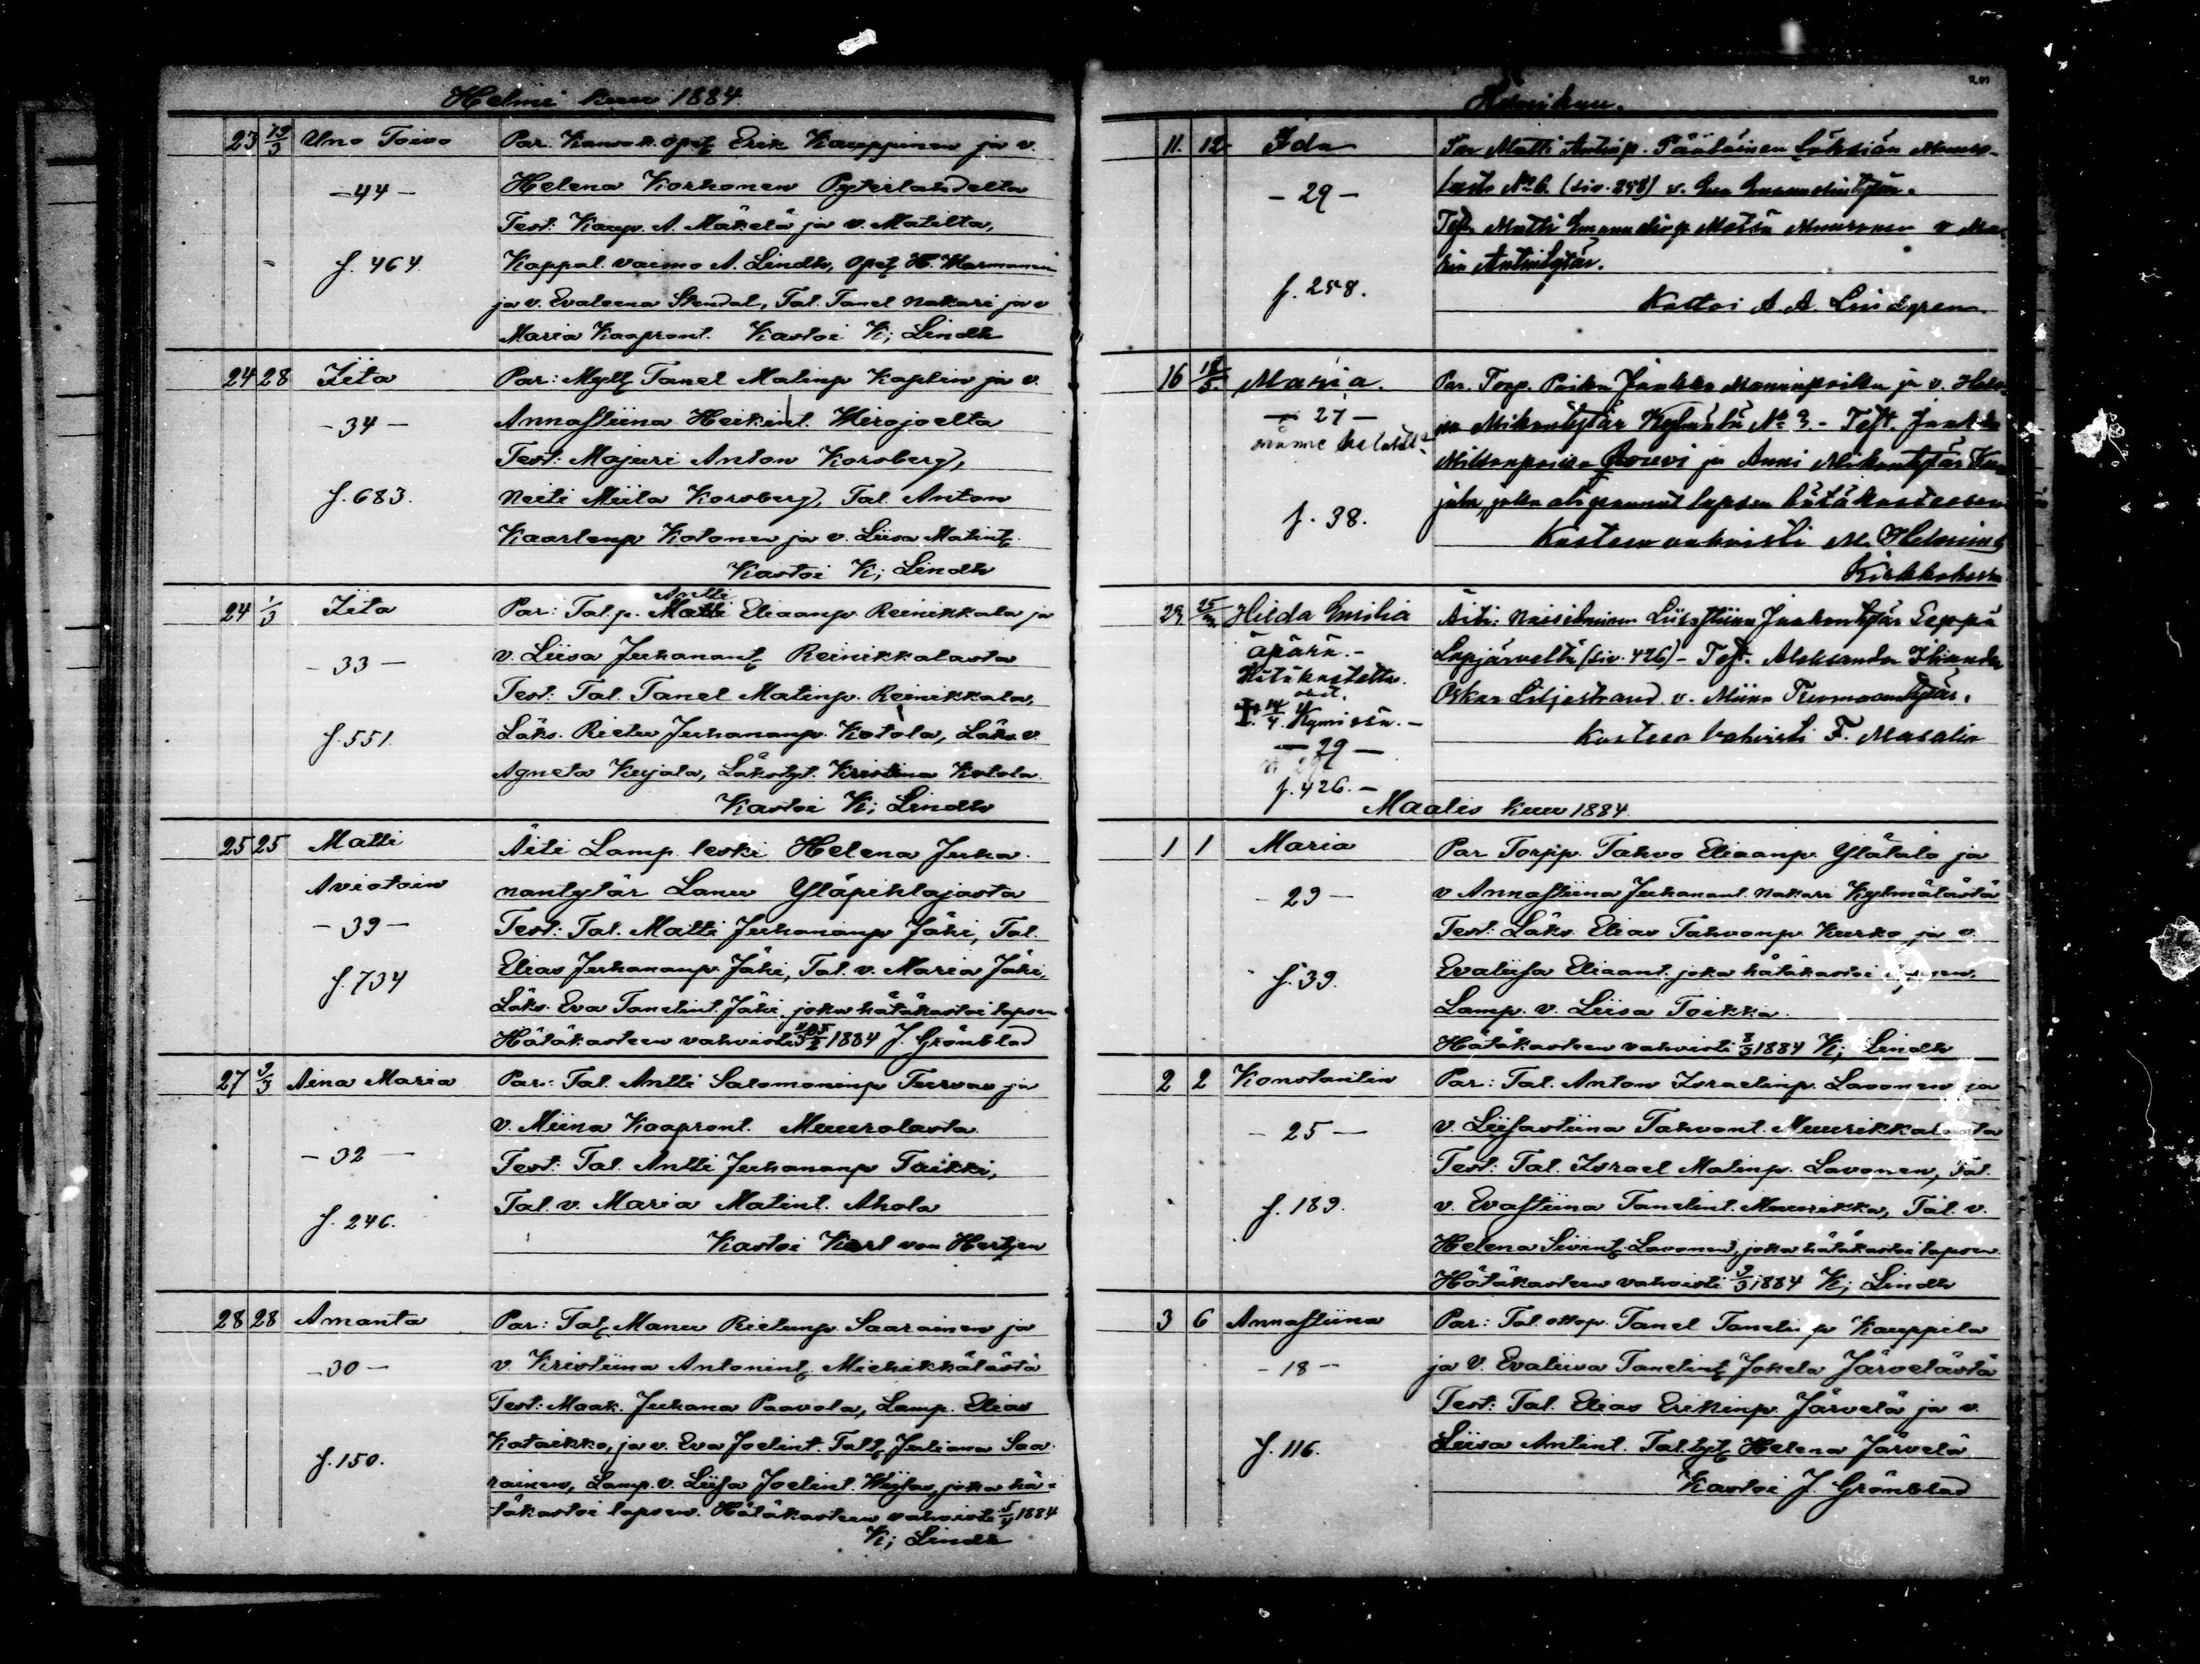 Helmi kuu 1884
23 13/3 Uno Toivo Par. Kansak. opet Erik Kauppinen ja v.
-44- Helena Korhonen Pyterlahdelta
Test: Kaup. A. Mäkelä ja v. Matilta,
f. 464 Kappal. vaimo A. Lindh, opet H.
ja v. Evaleena Stendal, Tal. Tanel Nakari ja v
Maria Kaapront. Kastoi K; Lindh
24 28 Iita Par: Mylt Tanel Matinp Kaplin ja v.
-34- Annastiina Heikint. Wirojoelta
Test: Majuri Anton Korsberg,
f. 683. Neiti Miila Korsberg, Tal. Anton
Kaarlenp Kotonen ja v. Liisa Matint
Kastoi K; Lindh
24 1/3 Iita Par: Tal. p. Antti Eliaanp. Reinikkala ja
-33- v. Liisa Juhanant Reinikkalasta
Test: Tal. Tanel Matinp. Reinikkala,
f. 551. Läks. Rietu Juhananp. Kotola, Läks. v.
Agneta Kujala, Läkstyt. Kristina Kotola.
Kastoi K; Lindh
25 25 Matti Äiti Lamp. leski Helena Juha-
Aviotoin nantytär Lanu Yläpihlajasta
-39- Test: Tal. Matti Juhananp Jäki, Tal.
f. 734 Elias Juhananp. Jäki, Tal. v. Maria Jäki,
Läks. Eva Tanelint. Jäki, joka hätäkastoi lapsen
Hätäkasteen vahvisti 1884 J. Grönblad
27 9/3 Aina Maria Par: Tal. Antti Salomoninp Turvas ja
v. Miina Kaapront. Muurolasta.
-32- Test: Tal. Antti Juhananp Taikki,
f. 246. Tal. v. Maria Matint. Ahola
Kastoi Karl von Hertzen
28 28 Amanta Par: Tal. Manu Rietunp Saarainen ja
-30- v. Kristiina Antonint. Miehikkälästä
Test: Maak. Juhana Paavola, Lamp. Elias
f. 150. Kataikko, ja v. Eva Joelint. Talt Juliana Saa-
rainen, Lamp. v. Liisa Joelint. joka hä-
täkastoi lapsen. Hätäkasteen vahvisti 1884
K; Lindh
11. 12 Ida Par Matti Antinp. Pääläinen
-29- No 6. (siv. 258) v. Eva Emanuelintytär.
Test. Matti Emanuelinp
Antintytär.
f. 258. Kastoi A. A. Lindgren.
16 Maria. Par. Torp. Poika Jaakko ja v. Hele-
-27- na Mikontytär Kylmälä No 3. - Test. Jaakko
Mikonpoika ja Anni Mikontytär
f. 38. lapsen hätäkasteesen
Kasteen vahvisti M. Helenius
Kirkkoherra
29 25/ Hilda Emilia Äiti: Naisihminen Liisastiina Jaakontytär Seppä
äpärä.- Lapjärveltä (siv. 426) - Test. Aleksander
Hätäkastettu. Oskar Liljestrand v. Miina Tuomaantytär.
14/4 Kymissä.-
-29- Kasteen vahvisti F. Masalin
f. 426.-
Maalis kuu 1884
1 1 Maria Par Torpp. Tahvo Eliaanp. Ylätalo ja
29- v Annastiina Juhanant. Nakari Kylmälästä
Test: Läks. Elias Tahvonp. Kurko ja v.
f. 39. Evaliisa Eliaant. joka hätäkastoi lapsen.
Lamp. v. Liisa Toikka.
Hätäkasteen vahvisti 2/3 1884 K; Lindh
2 2 Konstantin Par: Tal. Anton Israelinp. Lavonen ja
-25- v. Liisastiina Tahvont. Muurikkalasta
Test: Tal. Israel Matinp. Lavonen, Tal.
f. 189. v. Evastiina Tanelint. Muurikka, Tal. v.
Helena Sivint. Lavonen, joka hätäkastoi lapsen.
Hätäkasteen vahvisti 9/3 1884 K; Lindh
3 6 Annastiina Par: Tal. Tanel Tanelinp Kauppila
-18- ja v. Evaliisa Tanelint. Jokela Järvelästä
Test: Tal. Elias Erikinp. Järvelä ja v.
f. 116. Liisa Antint. Tal. tyt. Helena Järvelä
Kastoi J. Grönblad